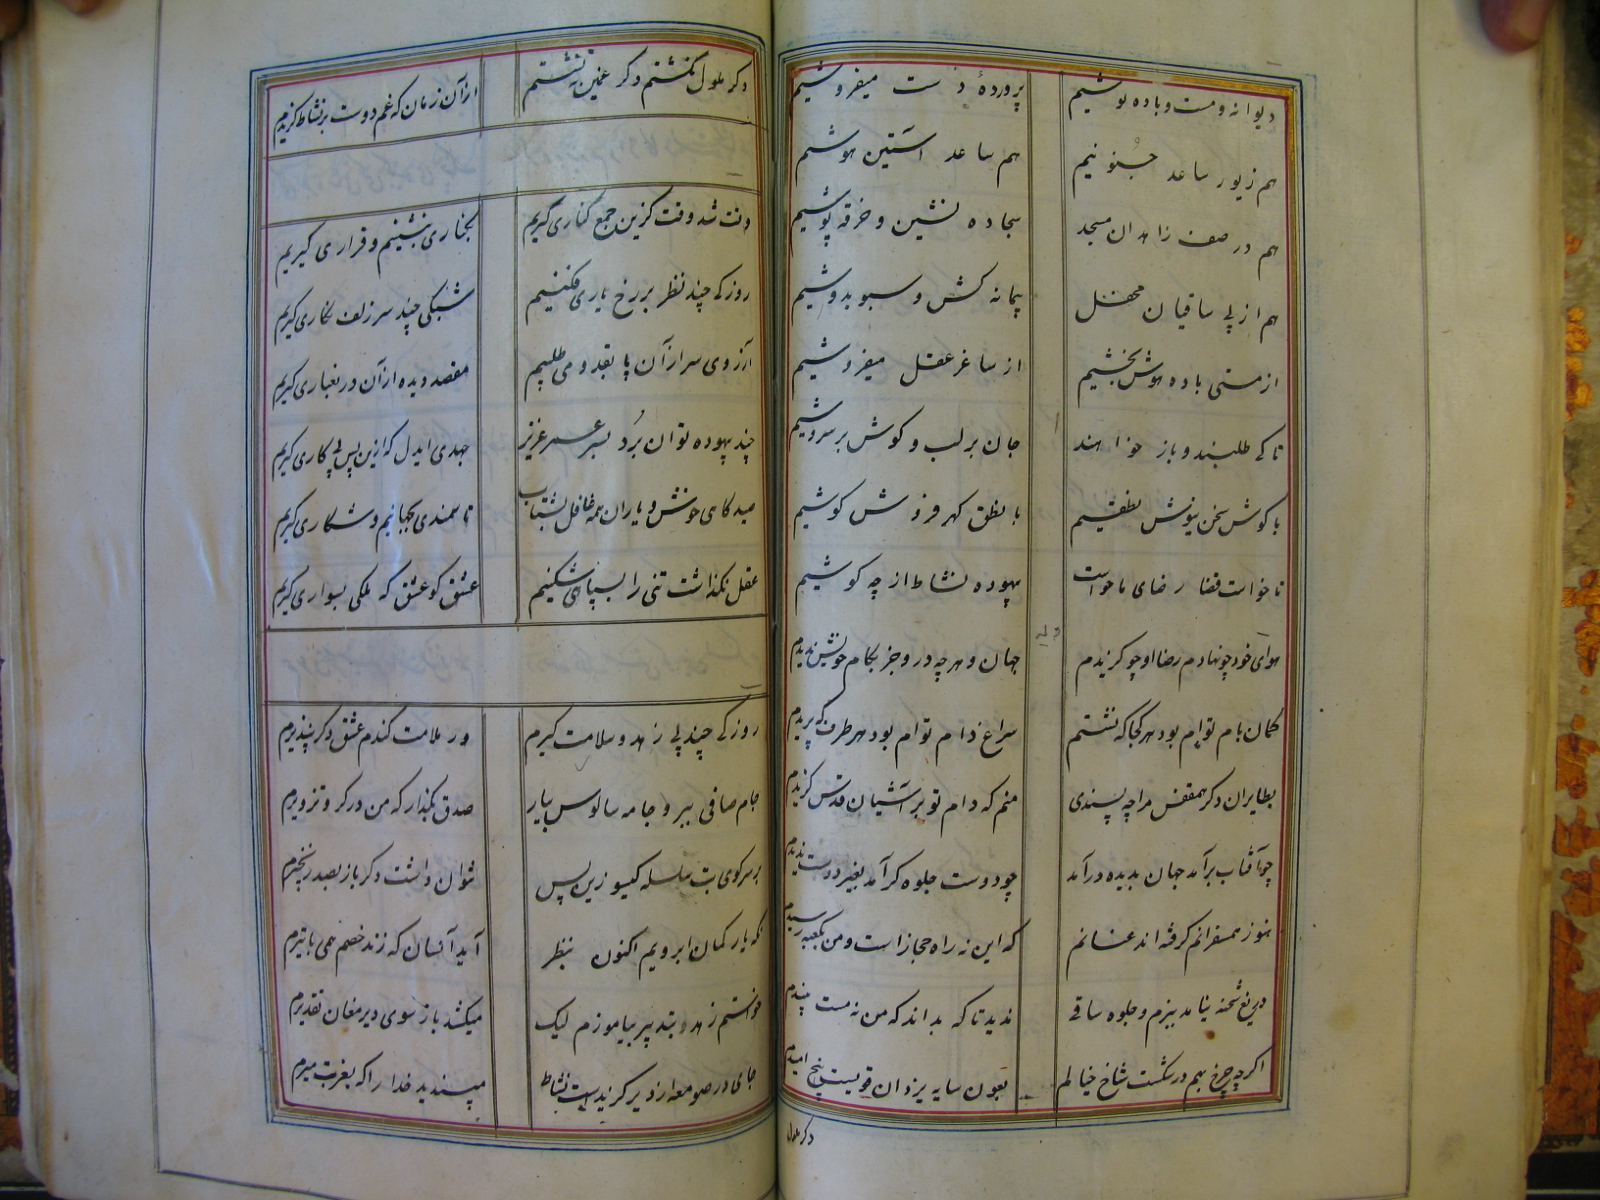 دیوانه و مست و باده نوشیم پرورده دست میفروشیم
هم زیور ساعد جنونیم هم ساعد آستین هوشیم
هم در صف زاهدان مسجد سجاده نشین و خرقه پوشیم
هم از پی ساقیان محفل پیمانه کش و سبو بدوشیم
از مستی باده هوش بخشیم از ساغر عقل میفروشیم
تا کی طلبند و باز خواهند جان بر لب و کوش بر سروشیم
با کوش سخن نیوش نطقیم با نطق کهر فروش کوشیم
تا خواست قضا رضای ما خواست بیهوده نشاط از چه کوشیم
وله
هوای خود چو نهادم رضا او چو کزیدم جهان و هر چه درو جز بکام خویش ندیدم
کمان بام توام بود هر کجا که نشستم سراغ دام توام بود هر طرف که پریدم
بطایران دکر همقفس مرا چه پسندی منم که دام تو بر آشیان قدس کزیدم
چو آفتاب برآمد جان بدیده درآمد چو دوست جلوه کر آمد بغیر دوست ندیدم
هنوز همسفرانم کرفته اند عنانم که این نه راه حجاز است و من بکعبه رسیدم
دریغ شحنه نیامد ببزم و جلوه ساقی ندید تا که بداند که من نه مست نبیذم
اکر چه چرخ بهم در شکست شاخ خیالم بعون سایه یزدان قویست بیخ امیدم
دکر ملول
دکر ملول نکشتم دکر غمین ننشستم از آن زمان که غم دوست بر نشاط کزیدم
وقت شد وقت کزین جمع کناری کیریم بخاری بنشینم و قراری کیریم
روزکی چند نظر بر رخ یاری فکنیم شبکی چند سر زلف نکاری کیریم
آرزوی سر از آن پا بقدومی طلبیم مقصد دیده از آن در بغباری کیریم
چند بیهوده توان برد بسر عمر عزیز جهدی ایدل که ازین پس پی کاری کیریم
صیدکاهی خوش و یاران همه غافل بشتاب تا سمندی بجهانیم و شکاری کیریم
عقل نکذاشت تنی را بسپاهی شکنیم عشق کو عشق که ملکی بسواری کیریم
روزکی چند پی زهد و سلامت کیرم ور ملامت کندم عشق دکر نپذیرم
جام صافی ببر و جامه سالوس بیار صدق بکذار که من در کر و تزویرم
بر سر کوی بت سلسله کیسو زین پس نتوان داشت دکر باز بصد زنجیرم
نکه یار کمان ابرویم اکنون بنظر آید آنسان که زند خصم همی با تیرم
خواستم زهد و بتدبیر بیاموزم لیک میکشد باز سوی دیر مغان تقدیرم
جای در صومعه از دیر کزیدست نشاط مپسندید خدا را که بغربت میرم